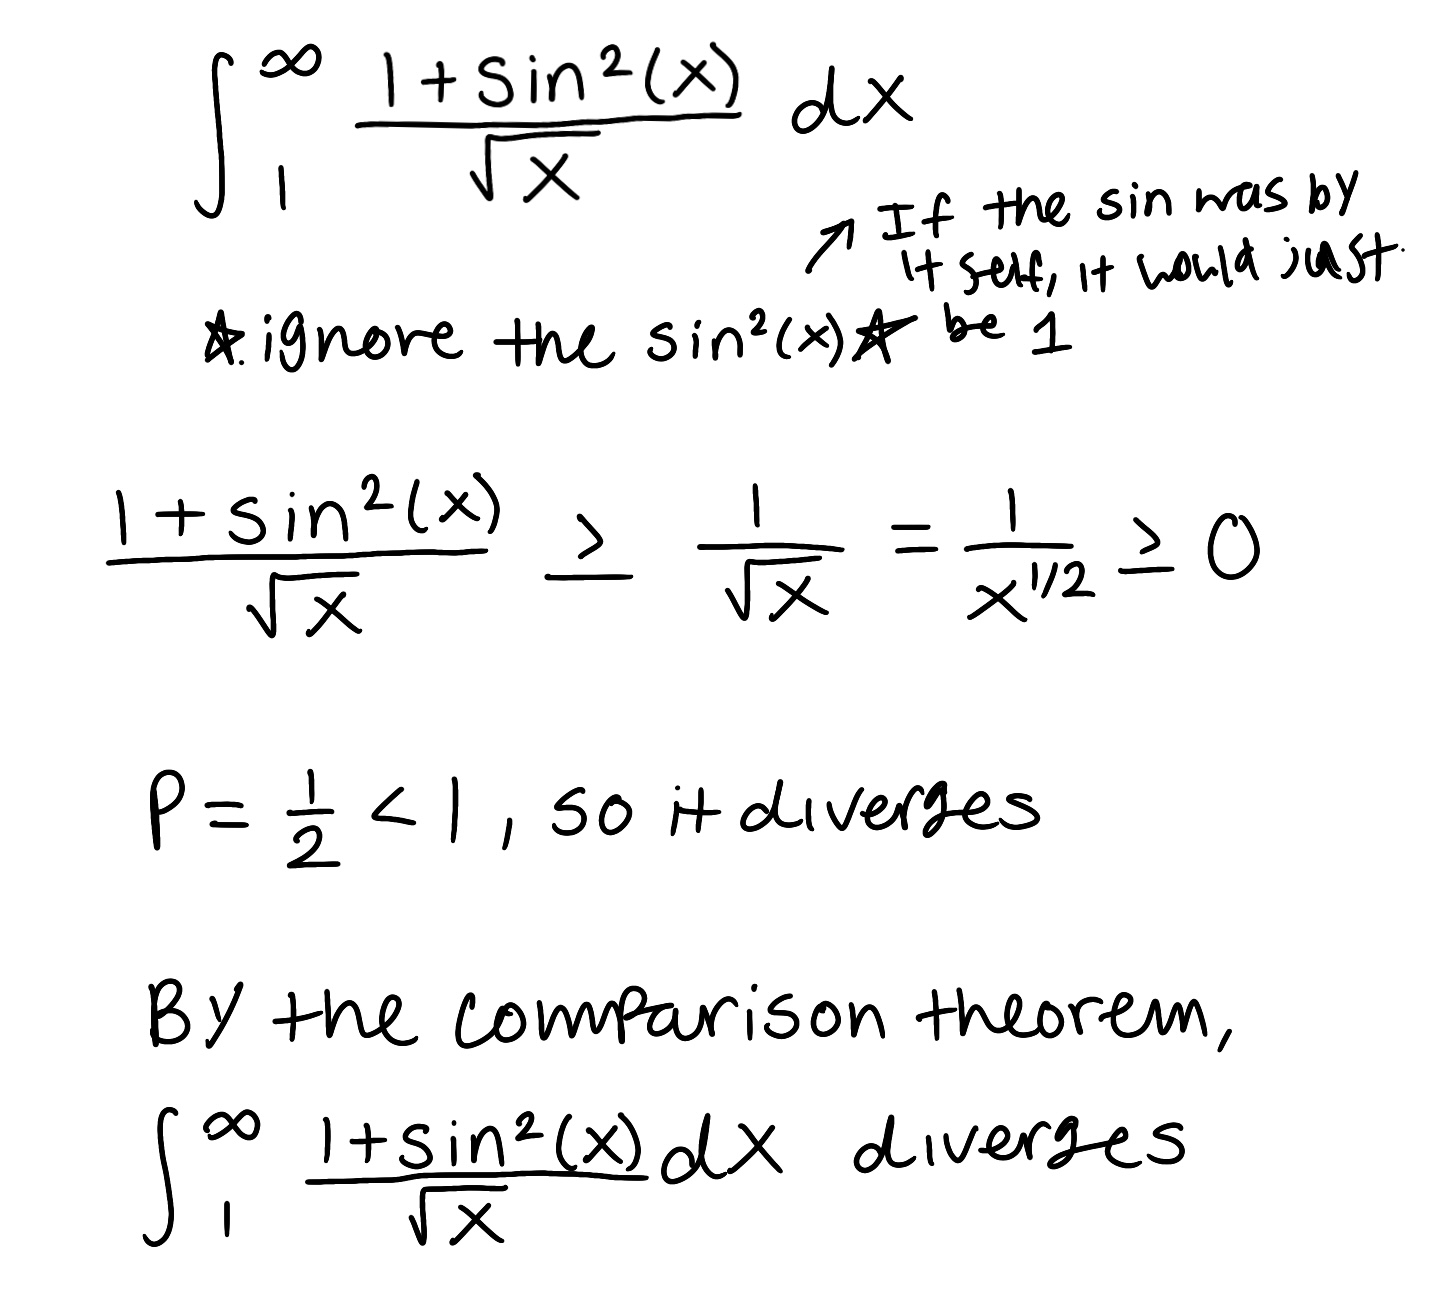 ∫₁^∞ (1 + sin²(x))/√x dx
↗ If the sin was by
itself, it would just
☆ ignore the sin²(x) ☆ be 1
(1 + sin²(x))/√x ≥ 1/√x = 1/x^(1/2) ≥ 0
P = 1/2 < 1, so it diverges
By the comparison theorem,
∫₁^∞ (1+sin²(x))/√x dx diverges